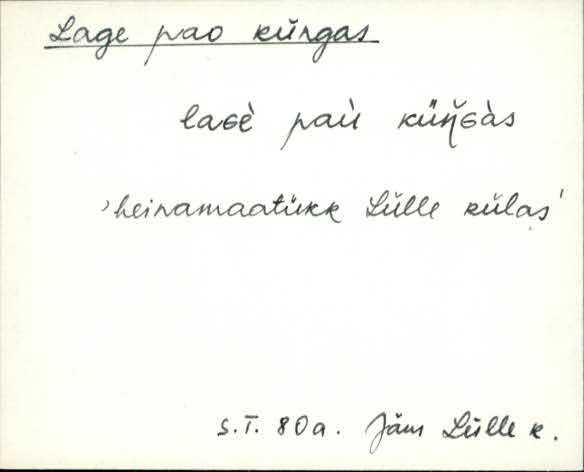 Lage pao kürgas
laɢè paù küŋ̆ɢàs
'heinamaatükk Lülle külas'
S.T. 80a. Jäm Lülle k.